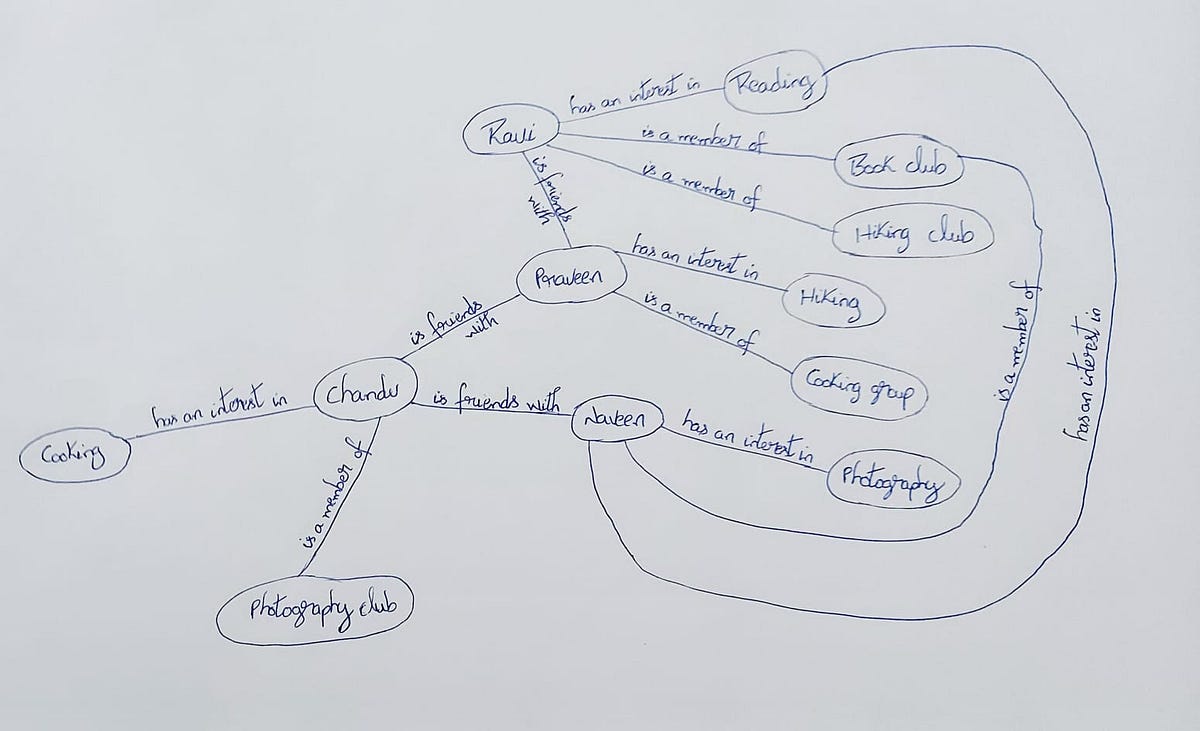 has an interest in
Reading
Ravi
is a member of
Book club
is a member of
Hiking club
is friends
with
Praveen
has an interest in
Hiking
is a member of
Cooking group
is friends
with
Chandu
is friends with
Naveen
has an interest in
Photography
has an interest in
Cooking
is a member of
Photography club
is a member of
has an interest in